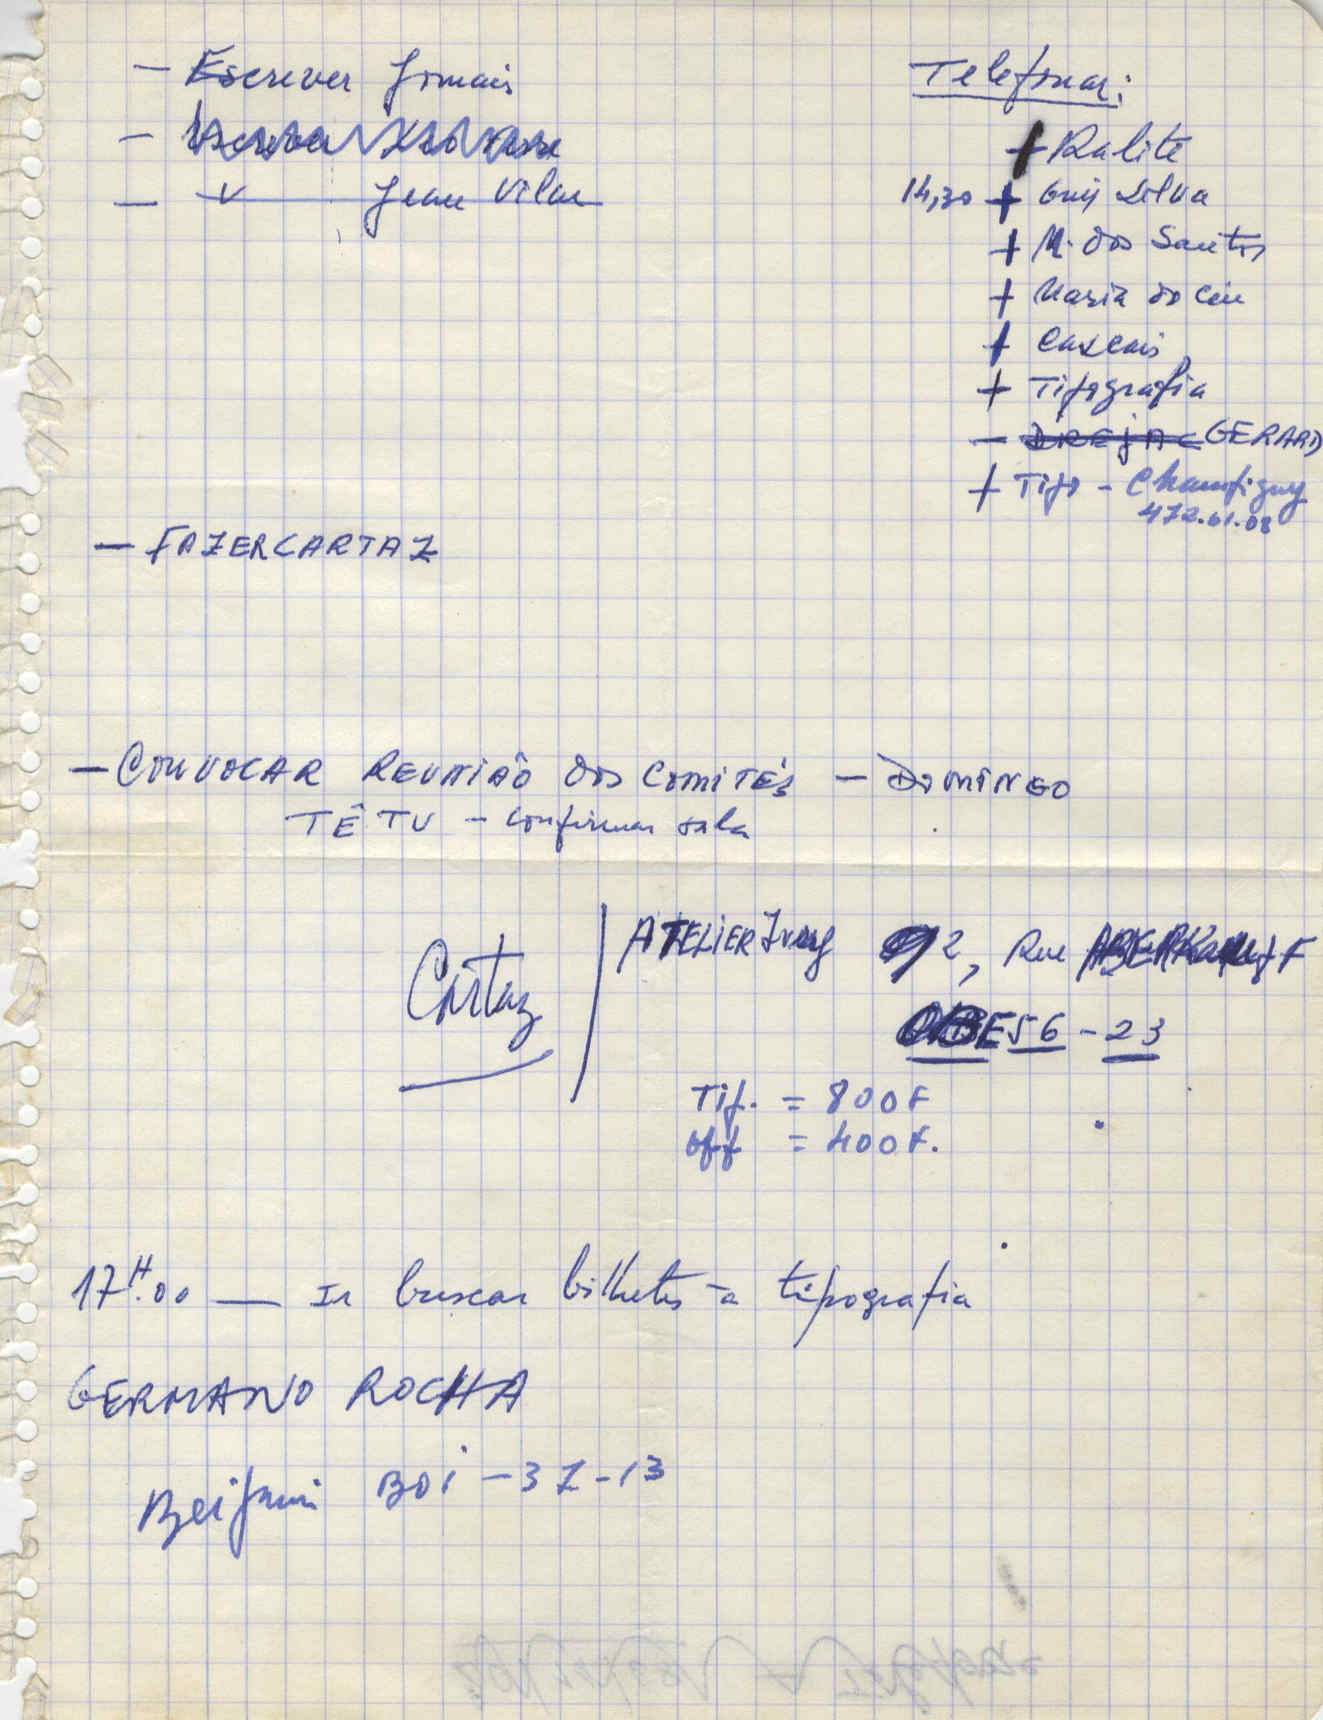 — Escrever Jornais
— Escrever
— v Jean Vilar
Telefonar:
+ Ralite
14,30 + Guy Silva
+ M. dos Santos
+ Maria do Céu
+ Cascais
+ Tipografia
— DREJAC GERARD
+ Tipo - Champigny
472.61.08
— FAZER CARTAZ
— CONVOCAR REUNIÃO dos COMITÉS — DOMINGO
TÊTU — confirmar sala
Cartaz
ATELIER Ivry 92, Rue
OBE 56 - 23
Tip. = 800F
Off = 400F.
17H.00 — Ir buscar bilhetes à tipografia
GERMANO ROCHA
Benjamin BOI - 37 - 13